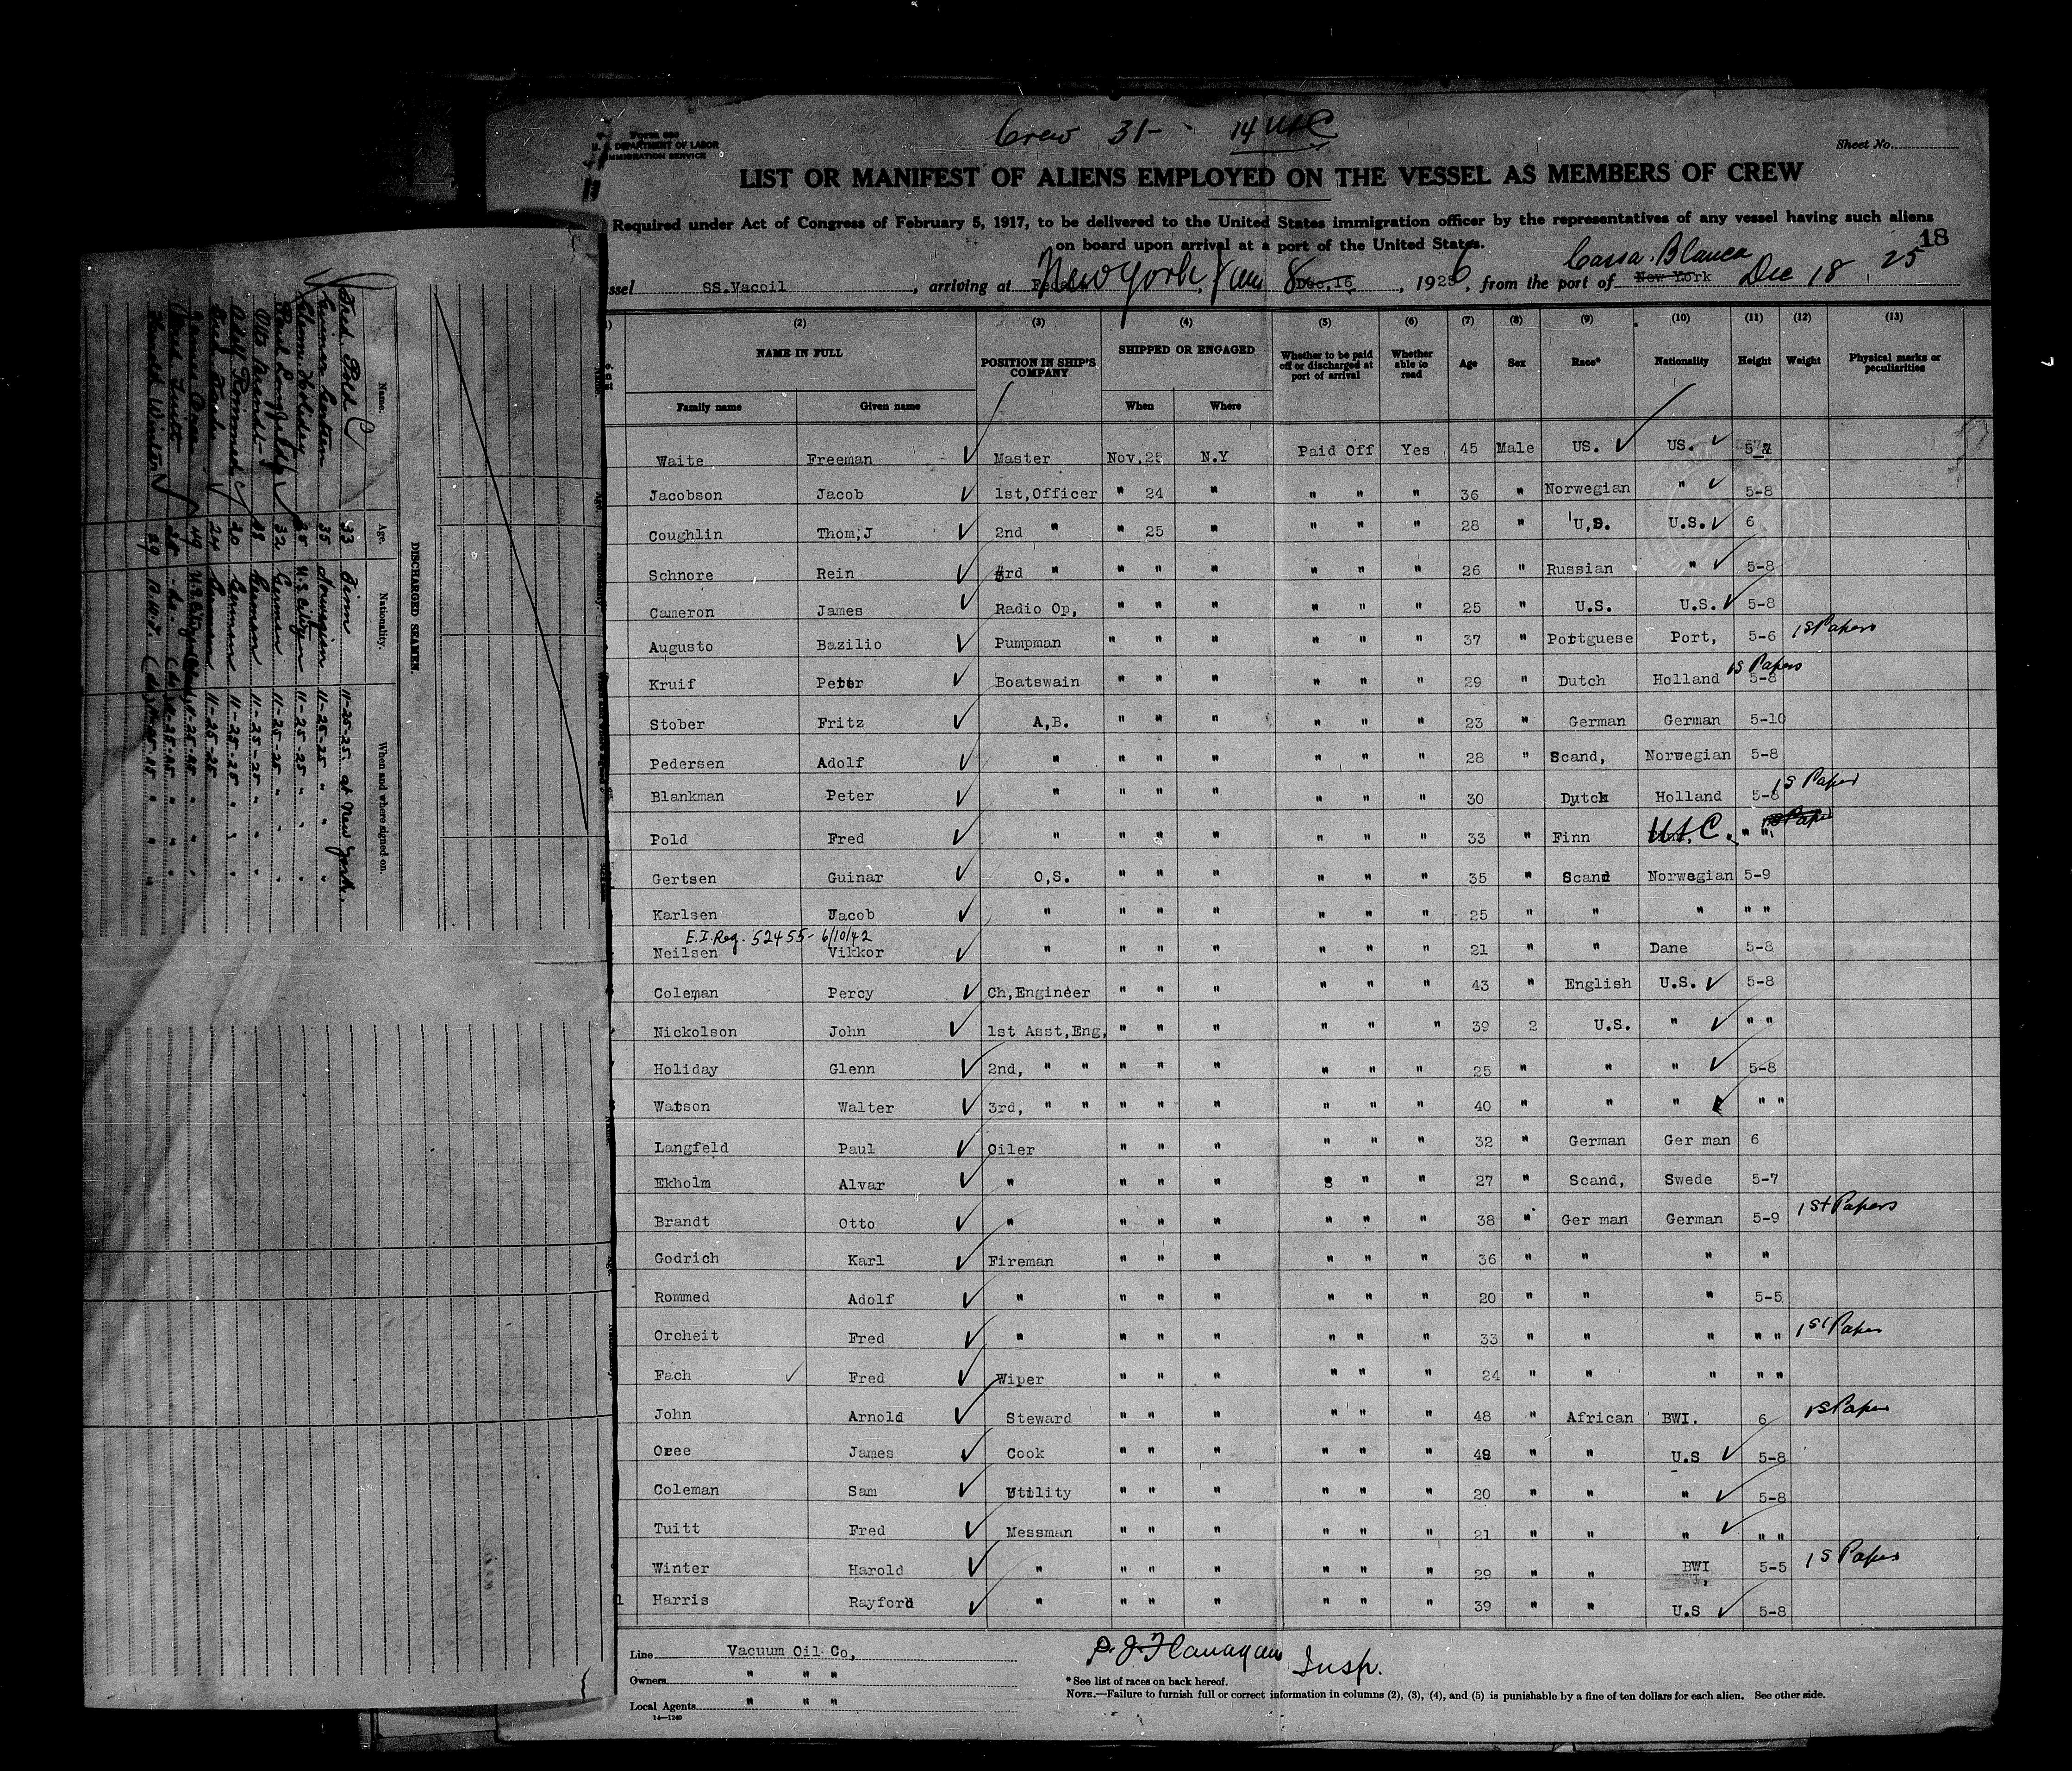 Crew 31- 14 USC
Form 680
U. S. DEPARTMENT OF LABOR
IMMIGRATION SERVICE
Sheet No.
LIST OR MANIFEST OF ALIENS EMPLOYED ON THE VESSEL AS MEMBERS OF CREW
Required under Act of Congress of February 5, 1917, to be delivered to the United States immigration officer by the representatives of any vessel having such aliens
on board upon arrival at a port of the United States.
18
Cassa-Blanca
ssel SS.Vacoil, arriving at New York, Jan 8 Dec,16, 1926, from the port of New York Dec 18, 25
(2) (3) (4) (5) (6) (7) (8) (9) (10) (11) (12) (13)
NAME IN FULL POSITION IN SHIP'S COMPANY SHIPPED OR ENGAGED Whether to be paid off or discharged at port of arrival Whether able to read Age Sex Race* Nationality Height Weight Physical marks or peculiarities
Family name Given name When Where
Waite Freeman Master Nov,25 N.Y Paid Off Yes 45 Male US. US.
Jacobson Jacob 1st,Officer " 24 " " " " 36 " Norwegian " 5-8
Coughlin Thom;J 2nd " " 25 " " " " 28 " U.S. U.S. 6
Schnore Rein 3rd " " " " " " " 26 " Russian " 5-8
Cameron James Radio Op, " " " " " " 25 " U.S. U.S. 5-8
Augusto Bazilio Pumpman " " " " " " 37 " Portguese Port, 5-6 1st Papers
Kruif Peter Boatswain " " " " " " 29 " Dutch Holland 5-8 1s Papers
Stober Fritz A,B. " " " " " " 23 " German German 5-10
Pedersen Adolf " " " " " " " 28 " Scand, Norwegian 5-8
Blankman Peter " " " " " " " 30 Dutch Holland 5-8 1s Paper
Pold Fred " " " " " " " 33 " Finn USC. " "
Gertsen Guinar O,S. " " " " " " 35 " Scand Norwegian 5-9
Karlsen Jacob " " " " " " " 25 " " " " "
E.I.Reg. 52455- 6/10/42
Neilsen Vikkor " " " " " " " 21 " " Dane 5-8
Coleman Percy Ch,Engineer " " " " " " 43 " English U.S. 5-8
Nickolson John 1st Asst,Eng, " " " " " " 39 2 U.S. " " "
Holiday Glenn 2nd, " " " " " " " " 25 " " " 5-8
Watson Walter 3rd, " " " " " " " " 40 " " " " "
Langfeld Paul Oiler " " " " " " 32 " German Ger man 6
Ekholm Alvar " " " " " " 27 " Scand, Swede 5-7
Brandt Otto " " " " " " " 38 " Ger man German 5-9 1st Papers
Godrich Karl Fireman " " " " " " 36 " " " "
Rommed Adolf " " " " " " " 20 " " " 5-5
Orcheit Fred " " " " " " " 33 " " " " " 1st Paper
Fach Fred Wiper " " " " " " 24 " " " " "
John Arnold Steward " " " " " " 48 " African BWI. 6 1s Paper
Oree James Cook " " " " " " 49 " " U.S 5-8
Coleman Sam Utility " " " " " " 20 " " " 5-8
Tuitt Fred Messman " " " " " " 21 " " " " "
Winter Harold " " " " " " " 29 " " BWI 5-5 1s Paper
Harris Rayford " " " " " " " 39 " " U.S 5-8
Line Vacuum Oil Co,
Owners " " "
Local Agents " " "
14—1240
P. J. Flanagan Insp.
*See list of races on back hereof.
NOTE.—Failure to furnish full or correct information in columns (2), (3), (4), and (5) is punishable by a fine of ten dollars for each alien. See other side.
DISCHARGED SEAMEN.
Name. Age. Nationality. When and where signed on.
Fred. Pold 33 Finn 11-25-25. at New York.
Guinar Gertsen 35 Norwegian 11-25-25 " "
Glenn Holiday 25 U.S. Citizen 11-25-25 " "
Paul Langfeldt 32 German 11-25-25 " "
Otto Brandt 38 German 11-25-25 " "
Adolf Rommed 20 German 11-25-25 " "
Fred Fach 24 German 11-25-25
James Oree 49 U.S. Citizen
Fred Tuitt
Harold Winter 29 B.W.I.